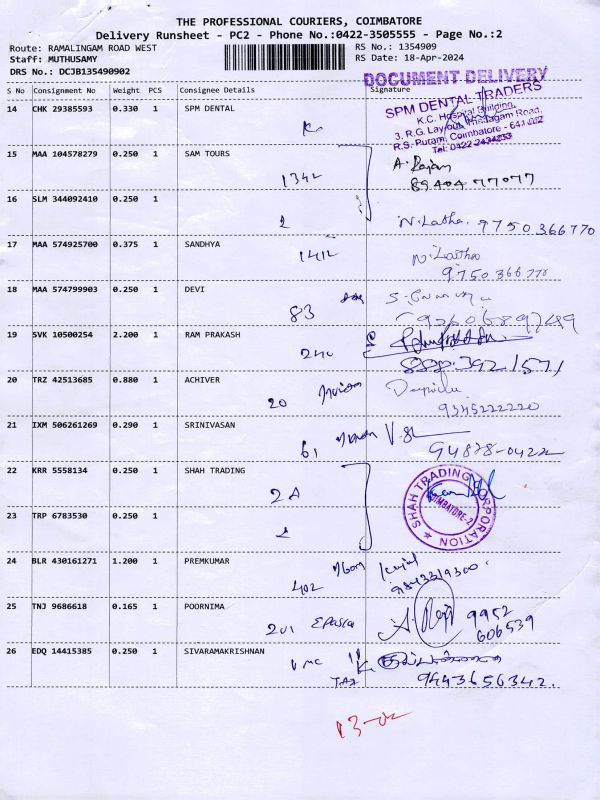 THE PROFESSIONAL COURIERS, COIMBATORE
Delivery Runsheet - PC2 - Phone No.:0422-3505555 - Page No.:2
Route: RAMALINGAM ROAD WEST
Staff: MUTHUSAMY
DRS No.: DCJB135490902
RS No.: 1354909
RS Date: 18-Apr-2024
DOCUMENT DELIVERY
S No Consignment No Weight PCS Consignee Details Signature
14 CHK 29385593 0.330 1 SPM DENTAL
SPM DENTAL TRADERS
K.C. Hospital Building,
3, R.G. Layout, Thadagam Road,
R.S. Puram, Coimbatore - 641 002
Tel: 0422 2434253
15 MAA 104578279 0.250 1 SAM TOURS 1342 A. Rajan
89404 77077
16 SLM 344092410 0.250 1 2 N. Latha. 9750366770
17 MAA 574925700 0.375 1 SANDHYA 1412 N. Latha
9750366770
18 MAA 574799903 0.250 1 DEVI 83
19 SVK 10500254 2.200 1 RAM PRAKASH 24C
20 TRZ 42513685 0.880 1 ACHIVER 20
9345222220
21 IXM 506261269 0.290 1 SRINIVASAN 61
94878-0422
22 KRR 5558134 0.250 1 SHAH TRADING 2A
SHAH TRADING CORPORATION
COIMBATORE-2
23 TRP 6783530 0.250 1 2
24 BLR 430161271 1.200 1 PREMKUMAR 402
9843319300
25 TNJ 9686618 0.165 1 POORNIMA 201 9952
606539
26 EDQ 14415385 0.250 1 SIVARAMAKRISHNAN
9443656342.